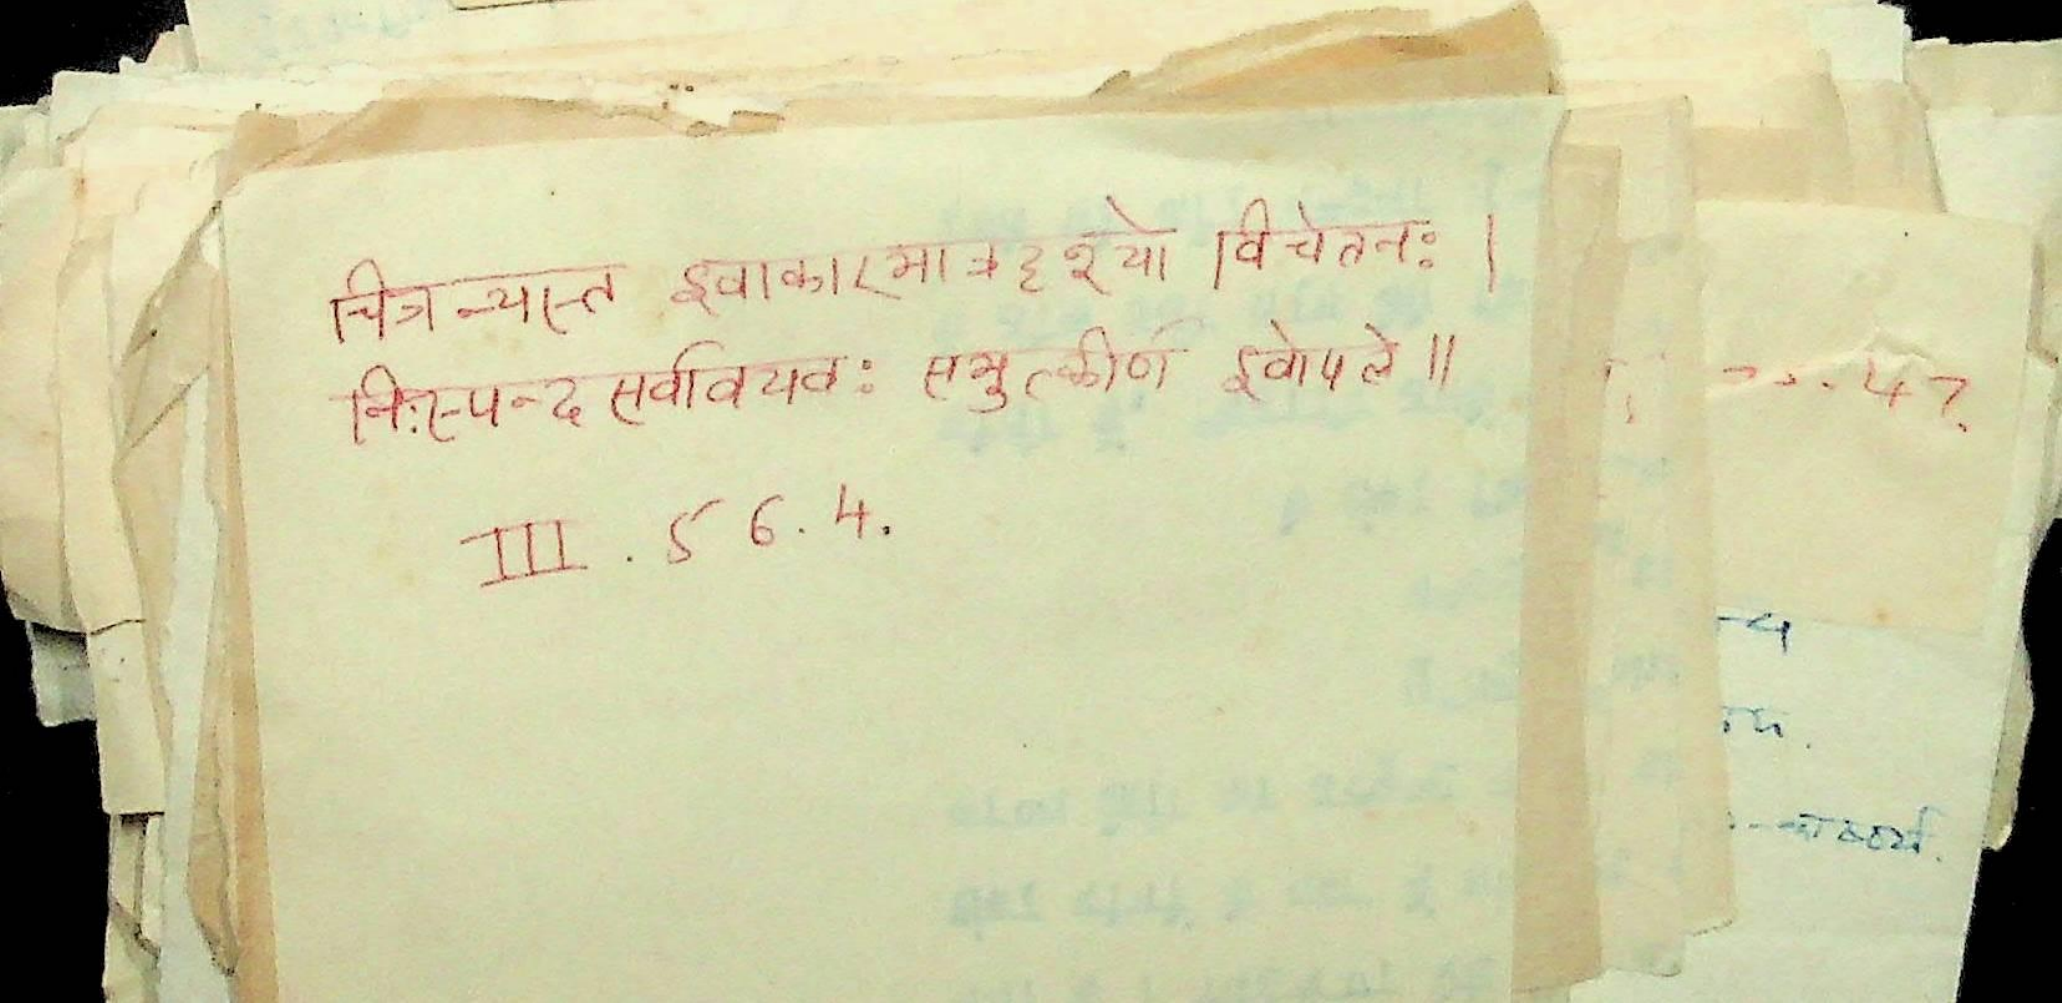 चित्रन्यस्त इवाकारमात्रदृश्यो विचेतनः |
निःस्पन्दसर्वावयवः समुत्कीर्ण इवोपले ||
III . 5 6 . 4 .
47.